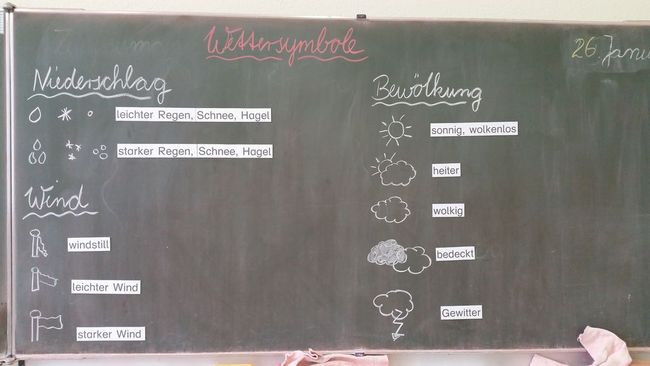 Wettersymbole
26. Janu
Niederschlag
leichter Regen, Schnee, Hagel
starker Regen, Schnee, Hagel
Wind
windstill
leichter Wind
starker Wind
Bewölkung
sonnig, wolkenlos
heiter
wolkig
bedeckt
Gewitter